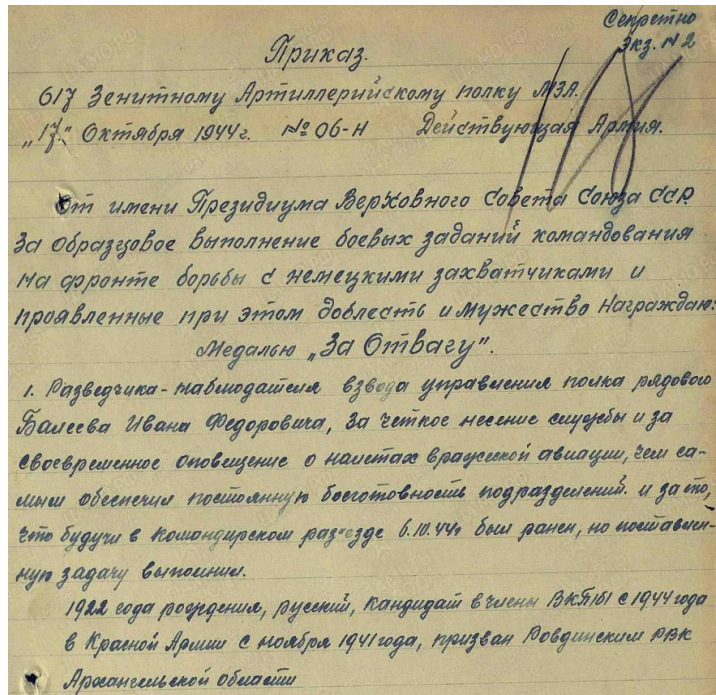 Секретно
Экз. №2
Приказ.
617 Зенитному Артиллерийскому полку МЗА.
„17" Октября 1944г. №06-Н Действующая Армия.
От имени Президиума Верховного Совета Союза ССР.
За образцовое выполнение боевых заданий командования
на фронте борьбы с немецкими захватчиками и
проявленные при этом доблесть и мужество Награждаю:
Медалью „За Отвагу".
1. Разведчика-наблюдателя взвода управления полка рядового
Балеева Ивана Федоровича, За четкое несение службы и за
своевременное оповещение о налетах вражеской авиации, чем са-
мым обеспечил постоянную боеготовность подразделений. и за то,
что будучи в командирском раз"езде 6.10.44г был ранен, но поставлен-
ную задачу выполнил.
1922 года рождения, русский, кандидат в члены ВКП/б/ с 1944 года
в Красной Армии с ноября 1941 года, призван Ровдинским РВК
Архангельской области